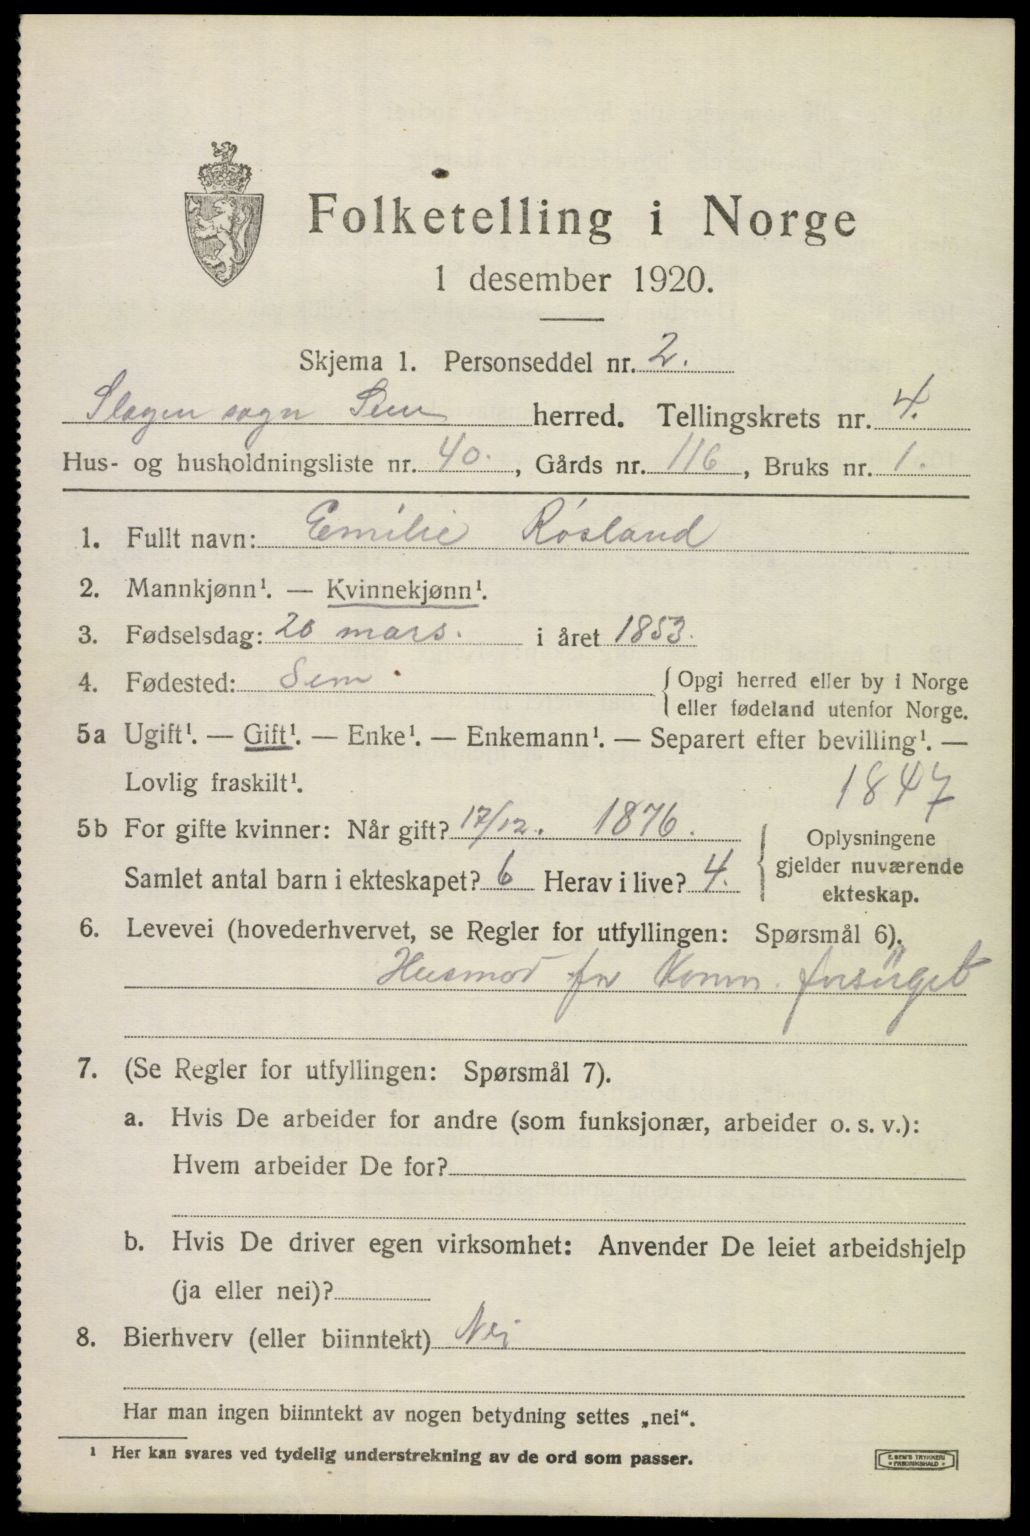 Folketelling i Norge
1 desember 1920.
Skjema 1. Personseddel nr. 2.
Slagen sogn Sem herred. Tellingskrets nr. 4.
Hus- og husholdningsliste nr. 40., Gårds nr. 116, Bruks nr. 1.
1. Fullt navn: Emilie Røsland
2. Mannkjønn¹. — Kvinnekjønn¹.
3. Fødselsdag: 20 mars. i året 1853.
4. Fødested: Sem { Opgi herred eller by i Norge
eller fødeland utenfor Norge.
5a Ugift¹. — Gift¹. — Enke¹. — Enkemann¹. — Separert efter bevilling¹. —
Lovlig fraskilt¹. 1847
5b For gifte kvinner: Når gift? 17/12. 1876. { Oplysningene
gjelder nuværende
ekteskap.
Samlet antal barn i ekteskapet? 6 Herav i live? 4.
6. Levevei (hovederhvervet, se Regler for utfyllingen: Spørsmål 6).
Husmod for Komm. forsørget
7. (Se Regler for utfyllingen: Spørsmål 7).
a. Hvis De arbeider for andre (som funksjonær, arbeider o. s. v.):
Hvem arbeider De for?
b. Hvis De driver egen virksomhet: Anvender De leiet arbeidshjelp
(ja eller nei)?
8. Bierhverv (eller biinntekt) Nei
Har man ingen biinntekt av nogen betydning settes „nei“.
¹ Her kan svares ved tydelig understrekning av de ord som passer.
E. SEM'S TRYKKERI
FREDRIKSHALD